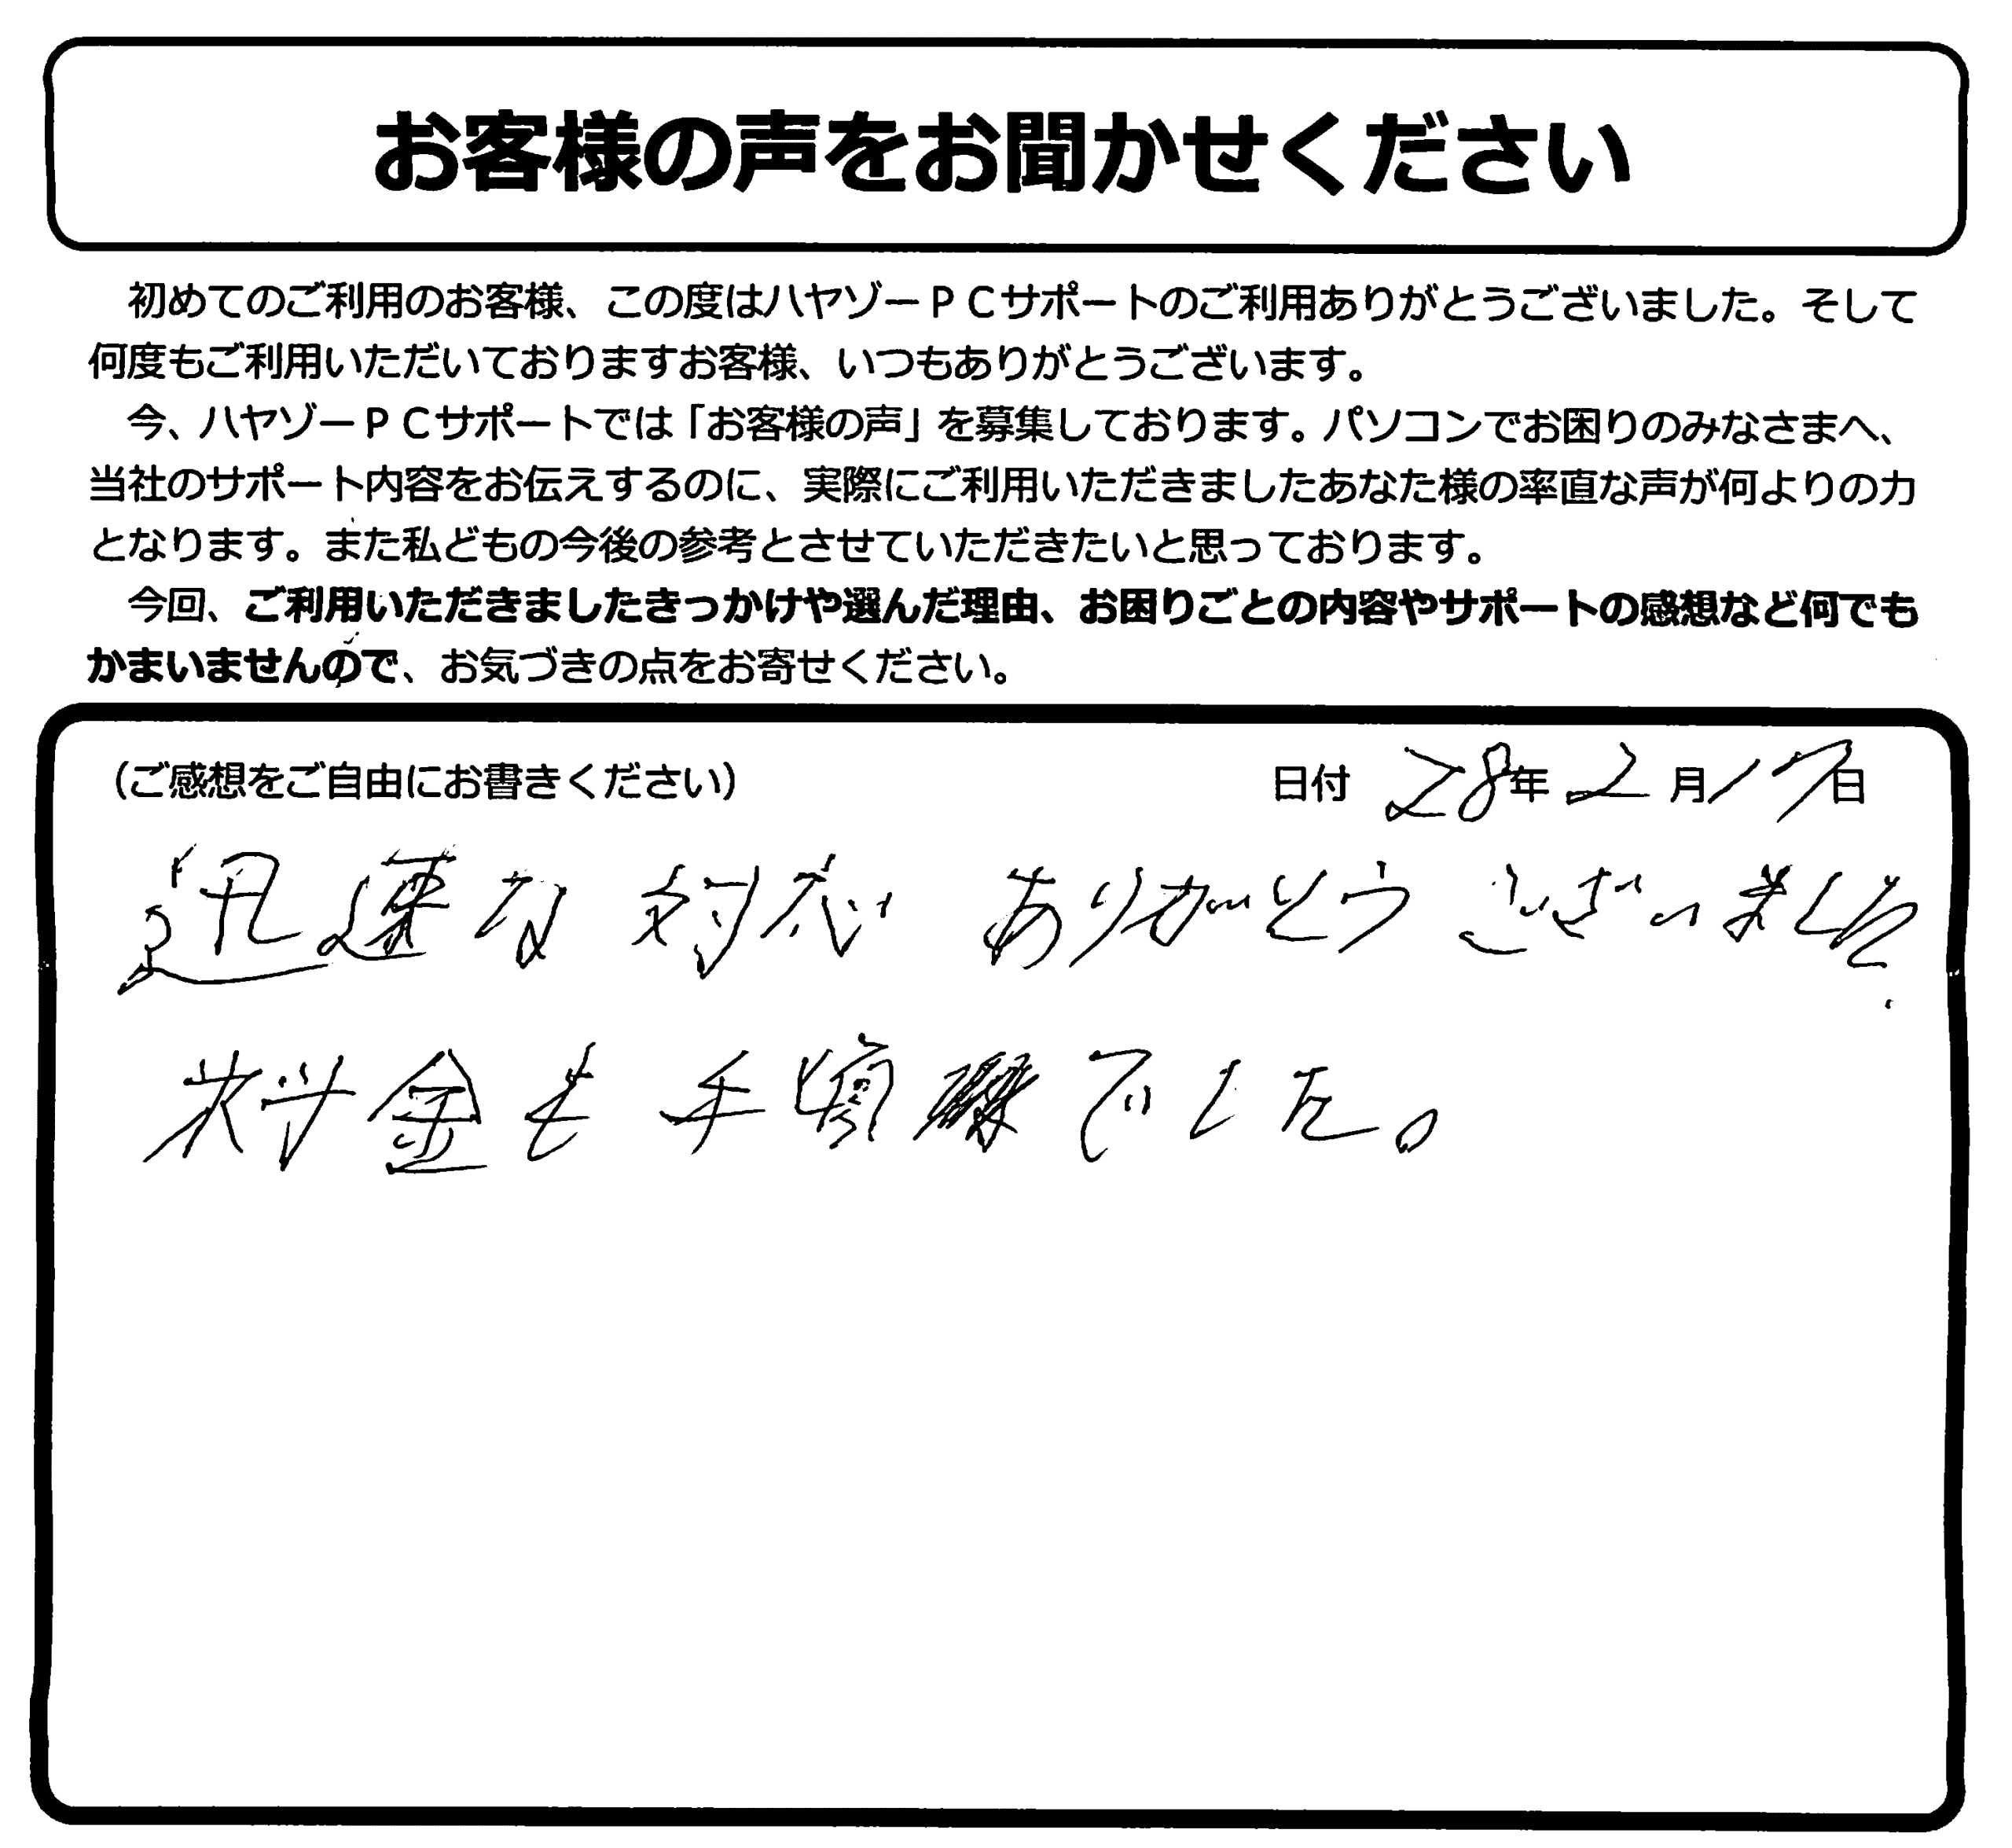 お客様の声をお聞かせください
初めてのご利用のお客様、この度はハヤゾーＰＣサポートのご利用ありがとうございました。そして
何度もご利用いただいておりますお客様、いつもありがとうございます。
今、ハヤゾーＰＣサポートでは「お客様の声」を募集しております。パソコンでお困りのみなさまへ、
当社のサポート内容をお伝えするのに、実際にご利用いただきましたあなた様の率直な声が何よりの力
となります。また私どもの今後の参考とさせていただきたいと思っております。
今回、ご利用いただきましたきっかけや選んだ理由、お困りごとの内容やサポートの感想など何でも
かまいませんので、お気づきの点をお寄せください。
（ご感想をご自由にお書きください） 日付 28年2月17日
迅速な対応 ありがとうございました.
料金も手頃でした。